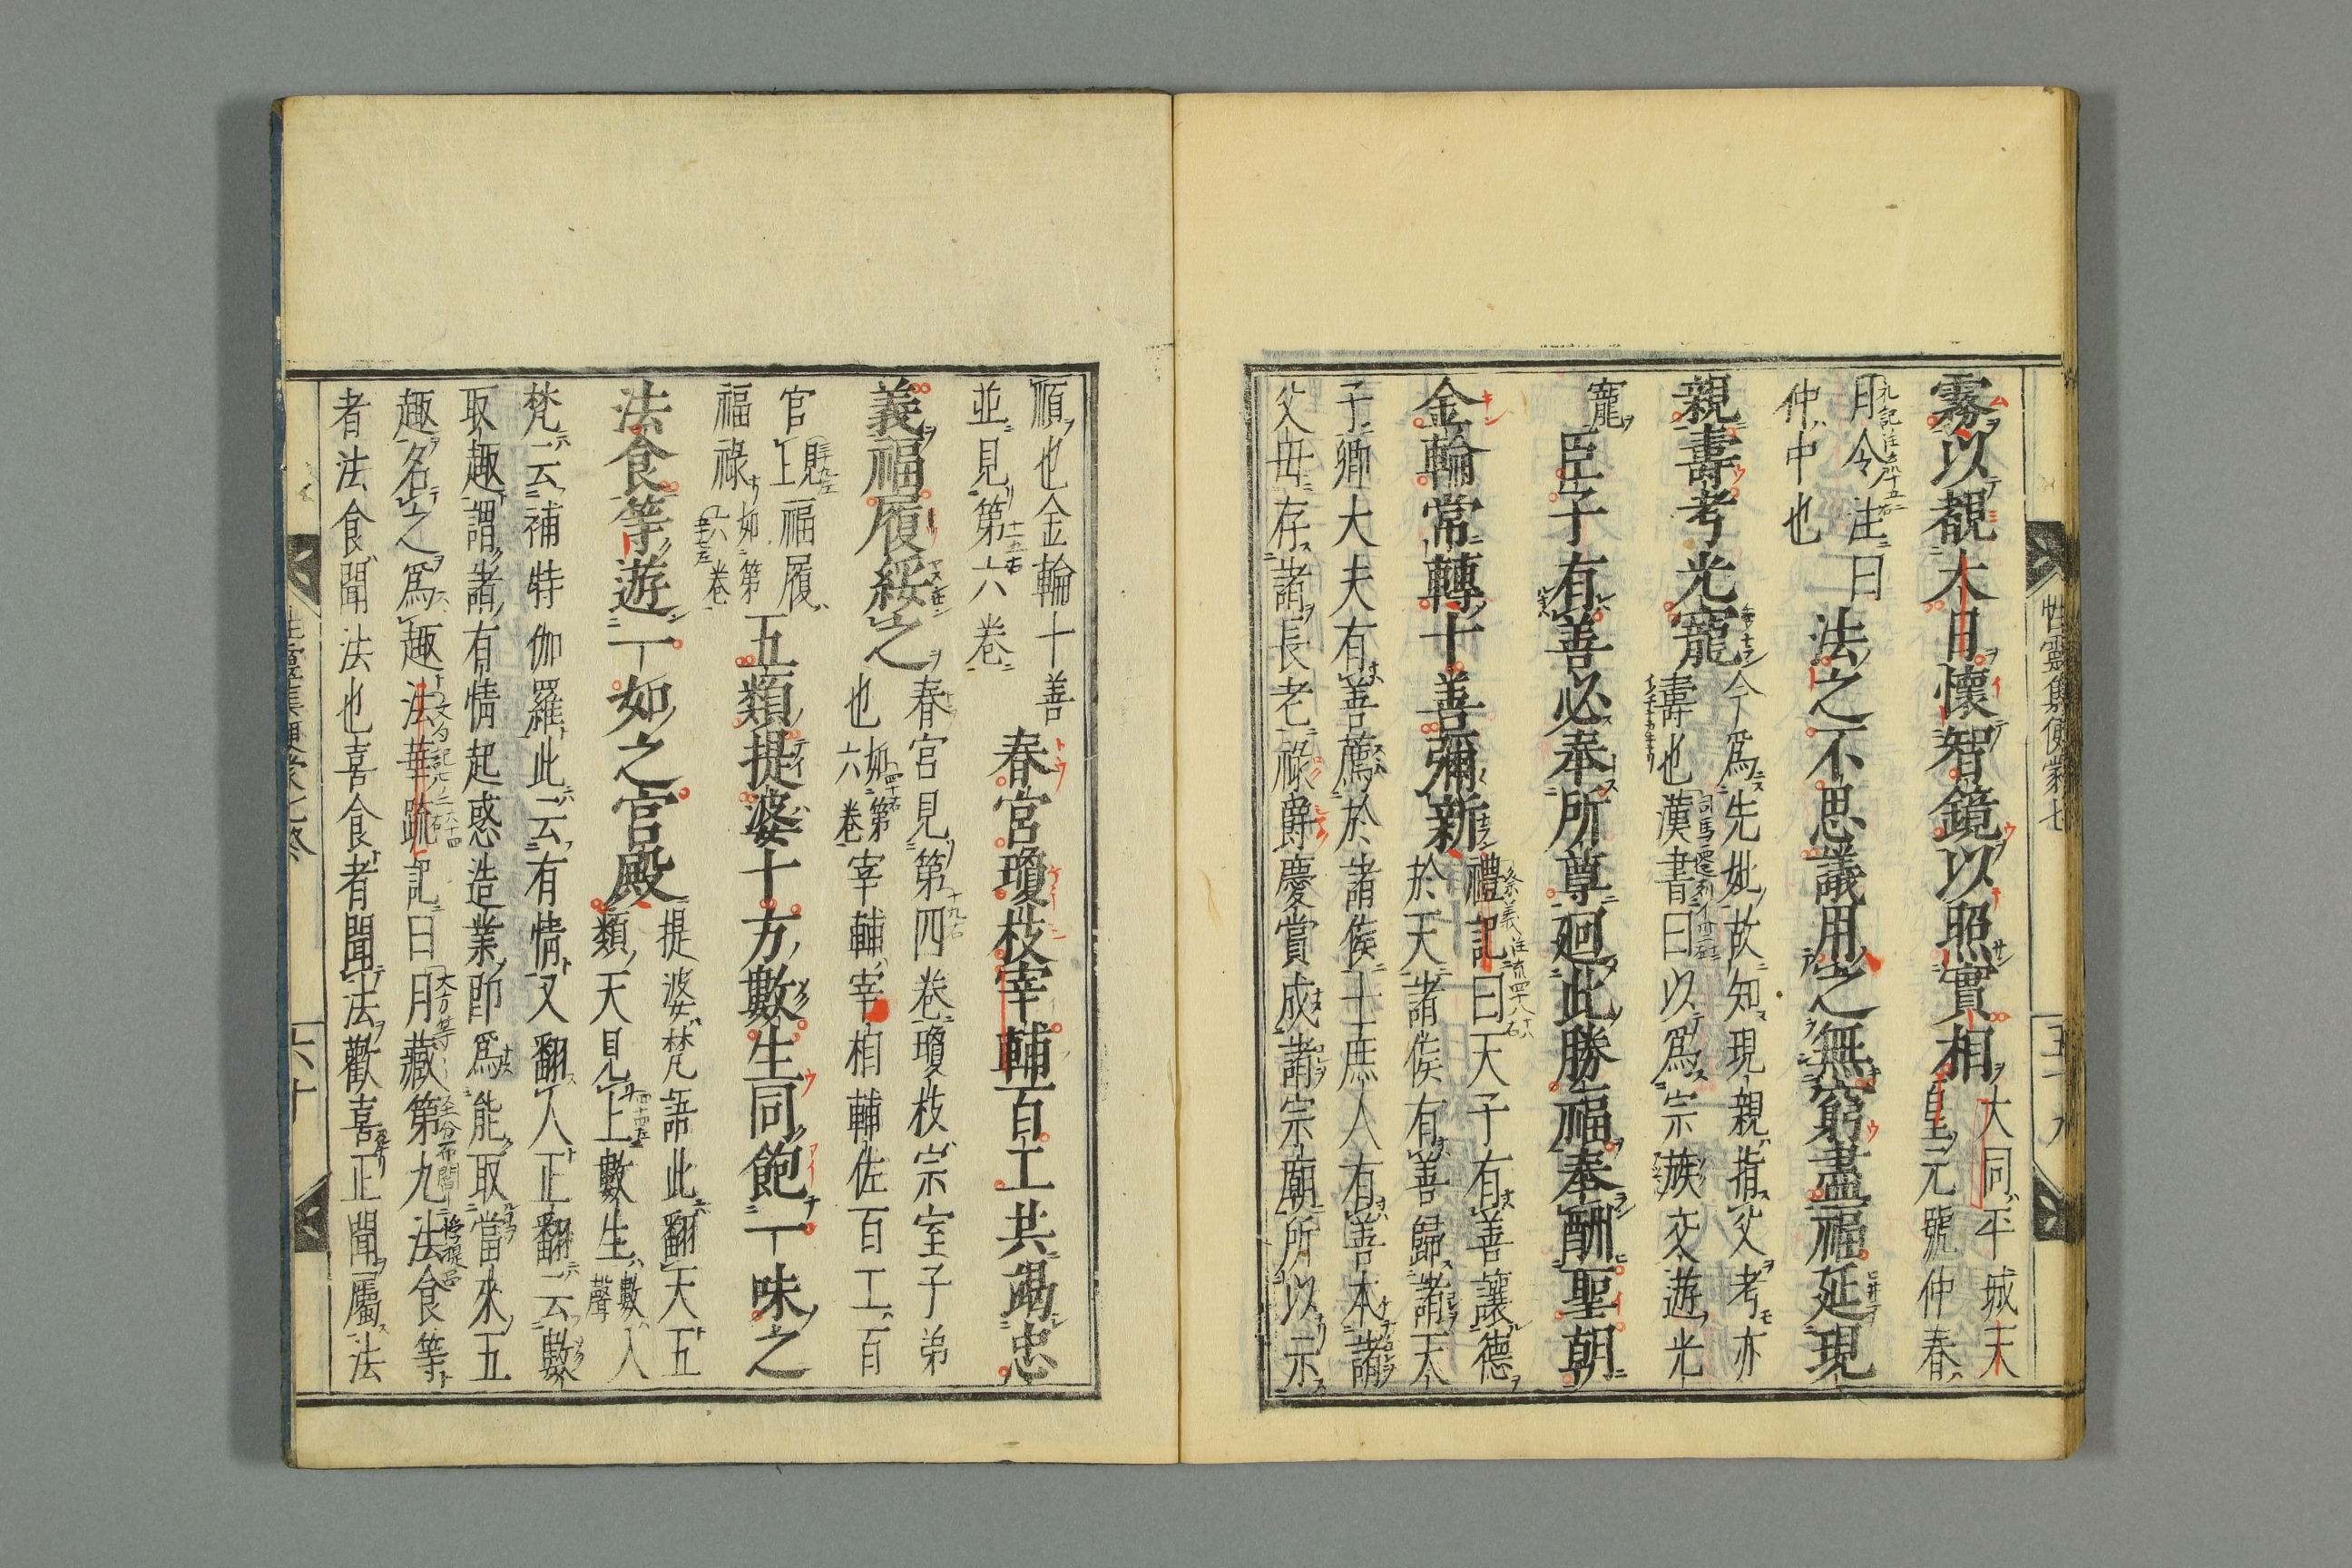 性靈集便蒙七
五十九
霧以覩大日懷智鏡以照實相
大同平城天
皇元號仲春
月令注曰
仲中也
法之不思議用之無窮盡福延現
親壽考光寵
今爲先妣故知現親指父考亦
壽也漢書曰以爲宗族交遊光
寵
臣子有善必奉所尊廻此勝福奉酬聖朝
金輪常轉十善彌新
禮記曰天子有善讓德
於天諸侯有善歸諸天
子卿大夫有善薦於諸侯士庶人有善本諸
父母存諸長老祿爵慶賞成諸宗廟所以示
順也金輪十善
並見第六卷
春宮瓊枝宰輔百工共竭忠
義福履綏之
春宮見第四卷瓊枝宗室子弟
也如第六卷宰輔宰相輔佐百工百
官上見福履
福祿如第六卷
五類提婆十方數生同飽一味之
法食等遊一如之宮殿
提婆梵語此翻天五
類天見上數生數入聲
梵云補特伽羅此云有情又翻人正翻云數
取趣謂諸有情起惑造業即爲能取當來五
趣名之爲趣法華疏記曰月藏第九法食等
者法食聞法也喜食者聞法歡喜正聞屬法
六十